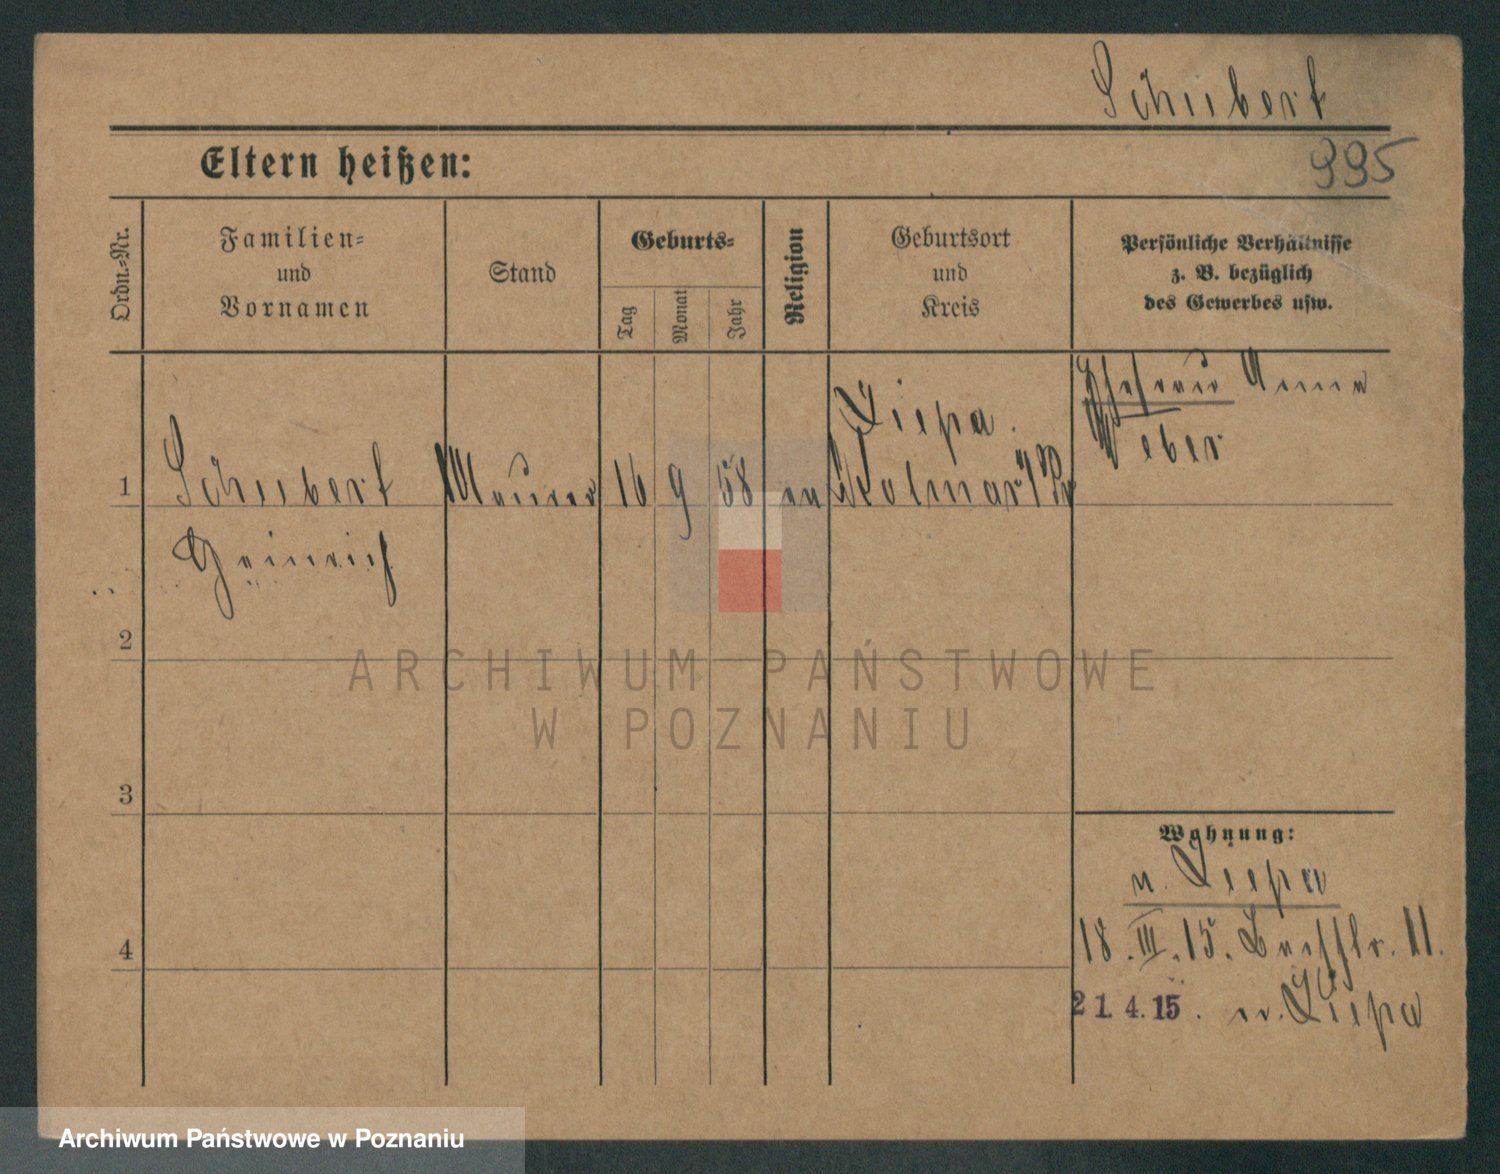 Schubert
Eltern heißen:
995
Ordn.-Nr.
Familien-
und
Vornamen
Stand
Geburts-
Tag
Monat
Jahr
Religion
Geburtsort
und
Kreis
Persönliche Verhältnisse
z. B. bezüglich
des Gewerbes usw.
Ehefrau Anna
Weber
Ziepa.
1
Schubert
Maurer
16
9
58
ev
Kolmar i/Ps
Heinrich
2
3
4
ARCHIWUM PAŃSTWOWE
W POZNANIU
Wohnung:
n. Ziepa
18.III.15. 11.
21.4.15. n. Ziepa
Archiwum Państwowe w Poznaniu